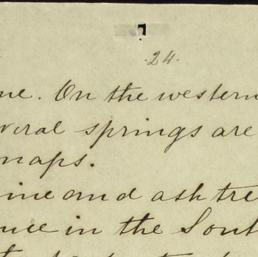 -24-
ne. On the western
veral springs are
maps.
ine and ash tre
ence in the Sout